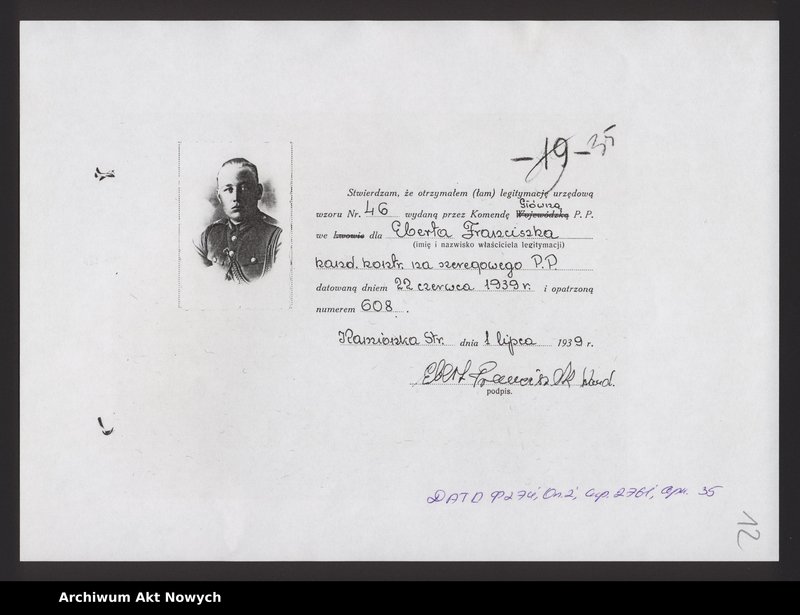 -19-35
Stwierdzam, że otrzymałem (łam) legitymację urzędową
Główną
wzoru Nr. 46 wydaną przez Komendę Wojewódzką P. P.
we Lwowie dla Eberta Franciszka
(imię i nazwisko właściciela legitymacji)
kand. kontr. na szeregowego P.P.
datowaną dniem 22 czerwca 1939 r. i opatrzoną
numerem 608.
Kamionka Str. dnia 1 lipca 1939 r.
Ebert Franciszek kand.
podpis.
DATO Ф274, Оп.2, спр. 2761, арк. 35
12
Archiwum Akt Nowych